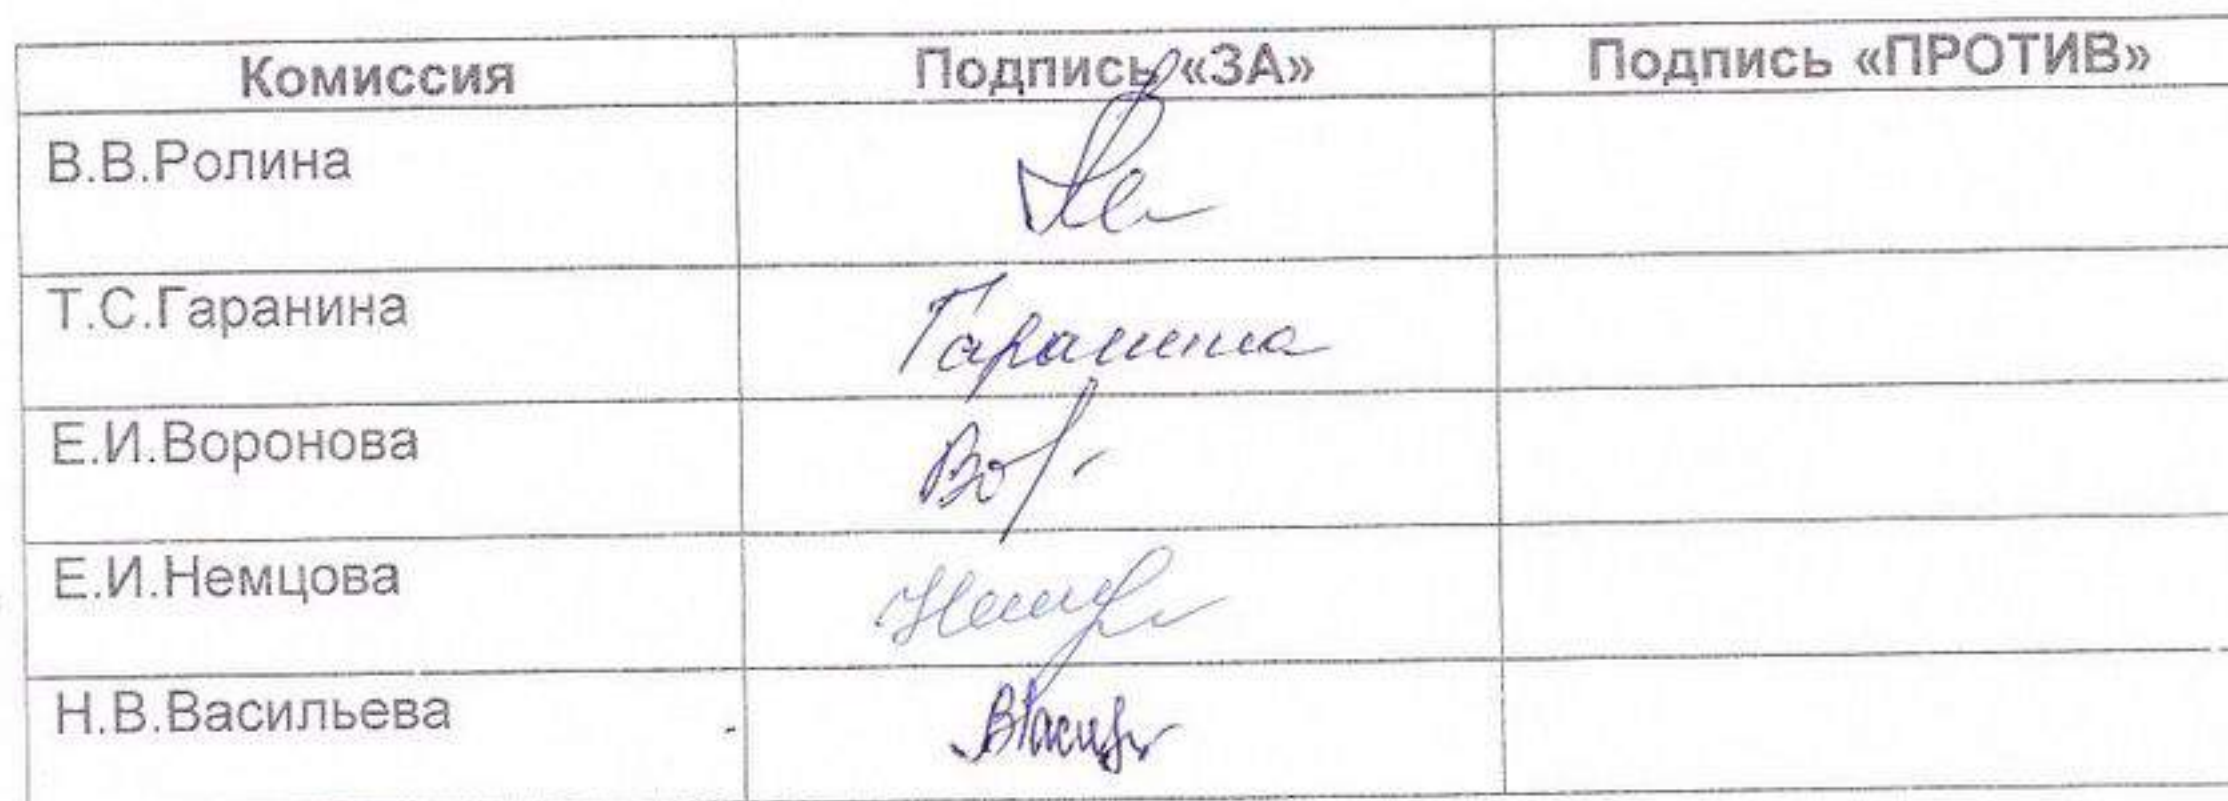 Комиссия Подпись «ЗА» Подпись «ПРОТИВ»
В.В.Ролина
Т.С.Гаранина Гаранина
Е.И.Воронова
Е.И.Немцова
Н.В.Васильева